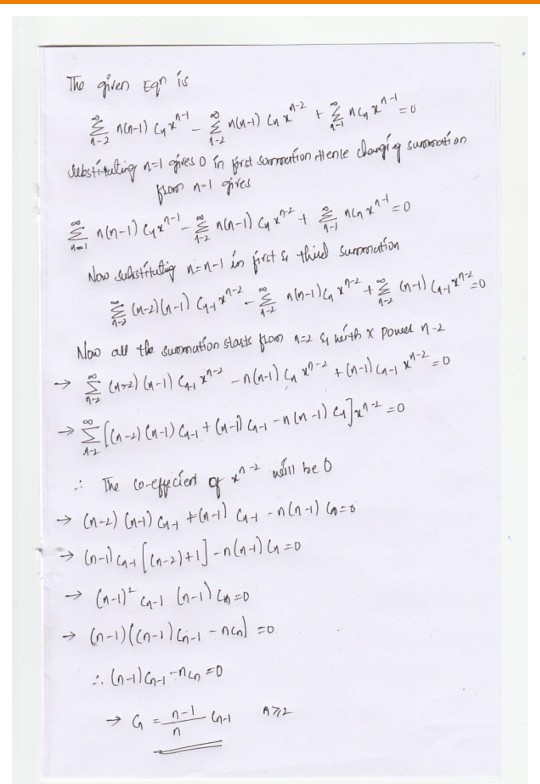 The given Eqn is
∞Σn=2 n(n-1) Cn x^n-1 - ∞Σn=2 n(n-1) Cn x^n-2 + ∞Σn=1 n Cn x^n-1 = 0
substituting n=1 gives 0 in first summation Hence changing summation
from n=1 gives
∞Σn=1 n(n-1) Cn x^n-1 - ∞Σn=2 n(n-1) Cn x^n-2 + ∞Σn=1 n Cn x^n-1 = 0
Now substituting n=n-1 in first & third summation
∞Σn=2 (n-2)(n-1) Cn-1 x^n-2 - ∞Σn=2 n(n-1) Cn x^n-2 + ∞Σn=2 (n-1) Cn-1 x^n-2 = 0
Now all the summation starts from n=2 & with x power n-2
→ ∞Σn=2 (n-2)(n-1) Cn-1 x^n-2 - n(n-1) Cn x^n-2 + (n-1) Cn-1 x^n-2 = 0
→ ∞Σn=2 [(n-2)(n-1) Cn-1 + (n-1) Cn-1 - n(n-1) Cn] x^n-2 = 0
∴ The co-effecient of x^n-2 will be 0
→ (n-2)(n-1) Cn-1 + (n-1) Cn-1 - n(n-1) Cn = 0
→ (n-1) Cn-1 [(n-2)+1] - n(n-1) Cn = 0
→ (n-1)² Cn-1 (n-1) Cn = 0
→ (n-1) ((n-1) Cn-1 - nCn) = 0
∴ (n-1) Cn-1 - nCn = 0
→ Cn = n-1/n Cn-1 n≥2